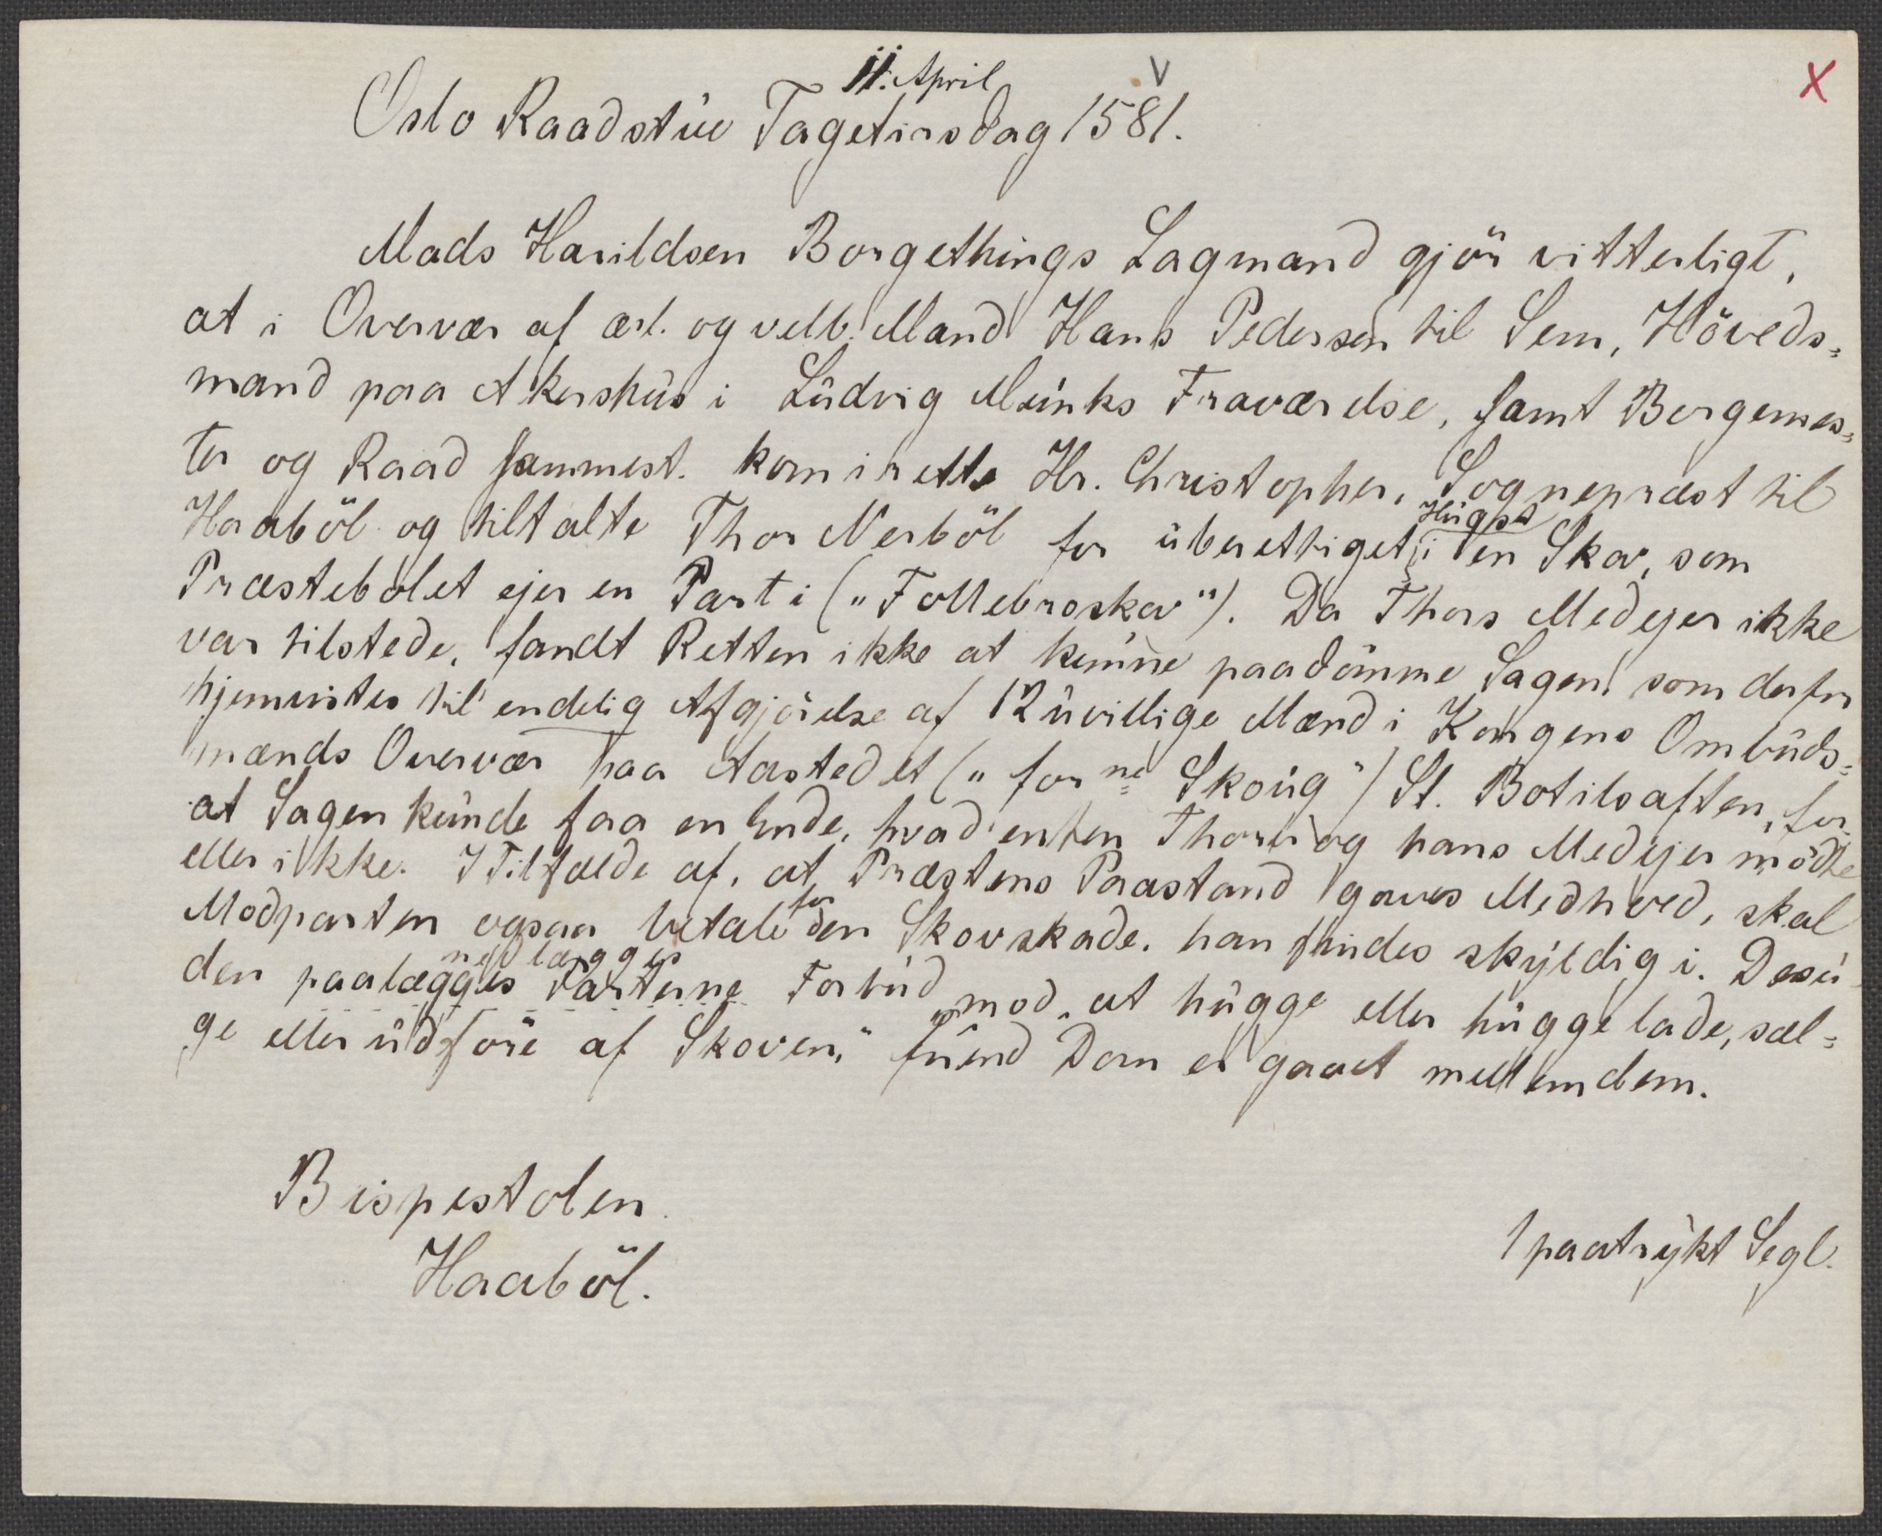 11. April
Oslo Raadstue Tagetirsdag 1581.
Mads Harildsen Borgethings Lagmand gjör vitterligt,
at i Overvær af ærl. og velb. Mand Hans Pedersen til Sem, Höveds=
mand paa Akershus i Ludvig Munks Fraværelse, samt Borgemes=
ter og Raad sammest. kom irette Hr. Christopher, Sognepræst til
Haaböl og tiltalte Thor Nerböl for uberettiget Hugst i en Skov, som
Præstebolet ejer en Part i („Follebroskov"). Da Thors Medejer ikke
var tilstede, fandt Retten ikke at kunne paadömme Sagen, som derfor
hjemvistes til endelig Afgjörelse af 12 uvillige Mænd i Kongens Ombuds=
mænds Overvær paa Aastedet („for ne Skoug") St. Botilsaften, for
at Sagen kunde faa en Ende, hvad enten Thor og hans Medejer mödte
eller ikke. I Tilfælde af, at Præstens Paastand gaves Medhold, skal
Modparten ogsaa betale for den Skovskade, han findes skyldig i. Desu
den paalægges nedlægges Parterne Forbud mod „at hugge eller hugge lade, sæl=
ge eller udföre af Skoven," förend Dom er gaaet mellem dem.
Bispestolen.
Haaböl.
1 paatrykt Segl.